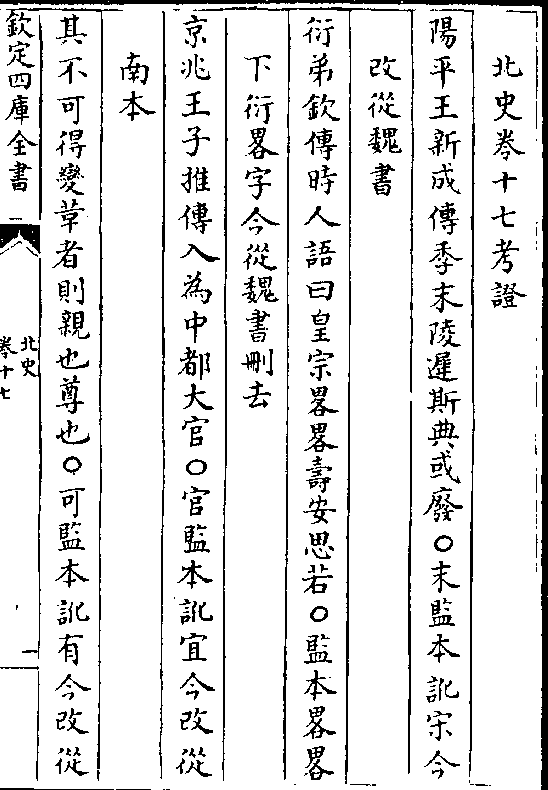 北史卷十七考證
陽平王新成傳季末陵遲斯典或廢○末監本訛宋今
改從魏書
衍弟欽傳時人語曰皇宗畧畧壽安思若○監本畧畧
下衍畧字今從魏書刪去
京兆王子推傳入為中都大官○官監本訛宜今改從
南本
其不可得變革者則親也尊也○可監本訛有今改從
欽定四庫全書
北史
卷十七
一